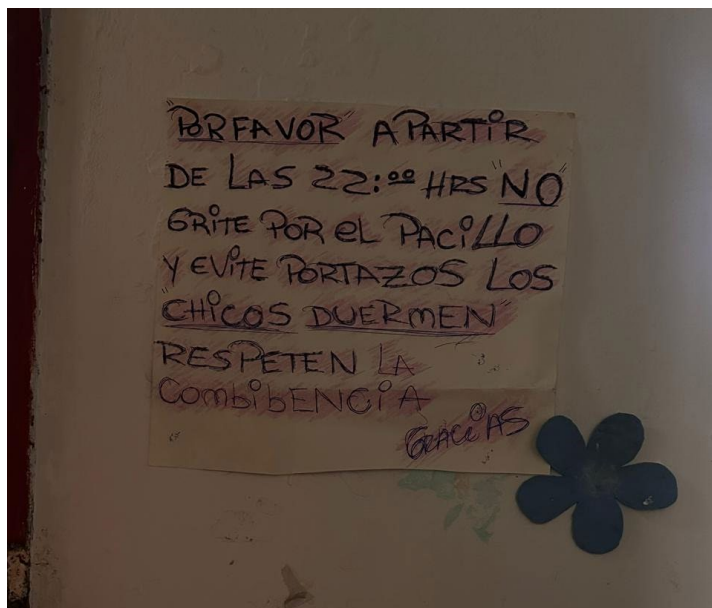 "POR FAVOR" A PARTIR
DE LAS 22:00 HRS "NO"
GRITE POR EL PACILLO
Y EVITE PORTAZOS LOS
"CHICOS DUERMEN"
RESPETEN LA
COMBIBENCIA
GRACIAS